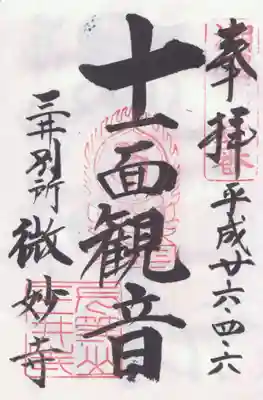 奉拝
平成廿六・四・六
十一面観音
三井別所
微妙寺